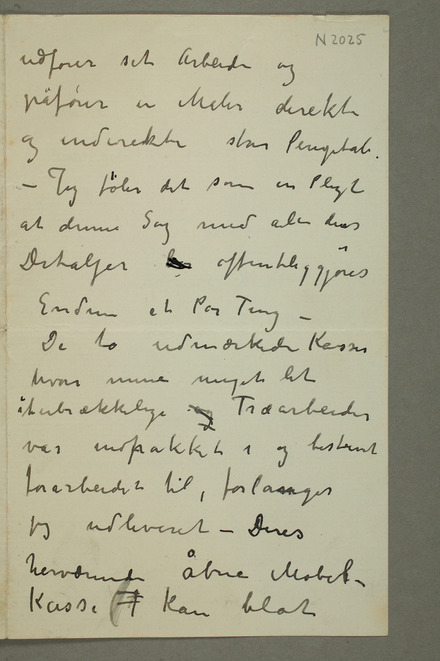 N 2025
udfører sit Arbeide og
påfører en Maler direkte
og indirekte stor Pengetab.
– Jeg føler det som en Pligt
at denne Sag med alle dens
Detaljer offentliggjöres
Endnu et Par Ting –
De to udmærkede Kasser
hvor mine meget let
itubrækkelige Træarbeider
var indpakket i og bestemt
forarbeidet til, forlanger
jeg udleveret – Deres
herværende åbne Møbel-
Kasse kan blot